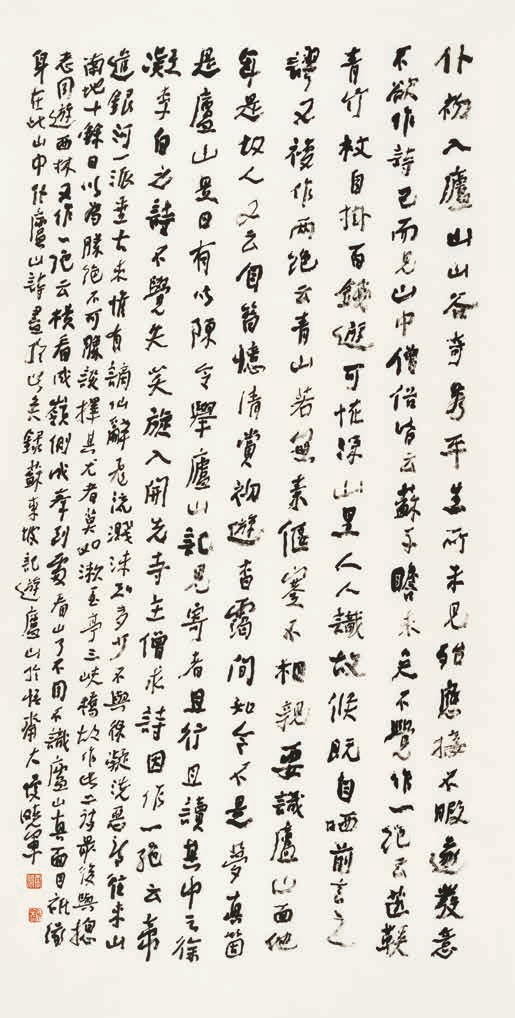 仆初入廬山山谷奇秀平生所未見殆應接不暇遂發意
不欲作詩已而見山中僧俗皆云蘇子瞻來矣不覺作一絕云芒鞵
青竹杖自掛百錢遊可怪深山里人人識故侯既自哂前言之
謬又復作兩絕云青山若無素偃蹇不相親要識廬山面他
年是故人又云自昔憶清賞初遊杳靄間如今不是夢真箇
是廬山是日有以陳令舉廬山記見寄者且行且讀其中云徐
凝李白之詩不覺失笑旋入開先寺主僧求詩因作一絕云帝
遣銀河一派垂古來惟有謫仙辭飛流濺沫知多少不與徐凝洗惡詩往來山
南地十餘日以為勝絕不可勝談擇其尤者莫如漱玉亭三峽橋故作此二詩最後與摠
老同遊西林又作一絕云橫看成嶺側成峰到處看山了不同不識廬山真面目祇緣
身在此山中仆廬山詩盡於此矣錄蘇東坡記遊廬山於悟齋大